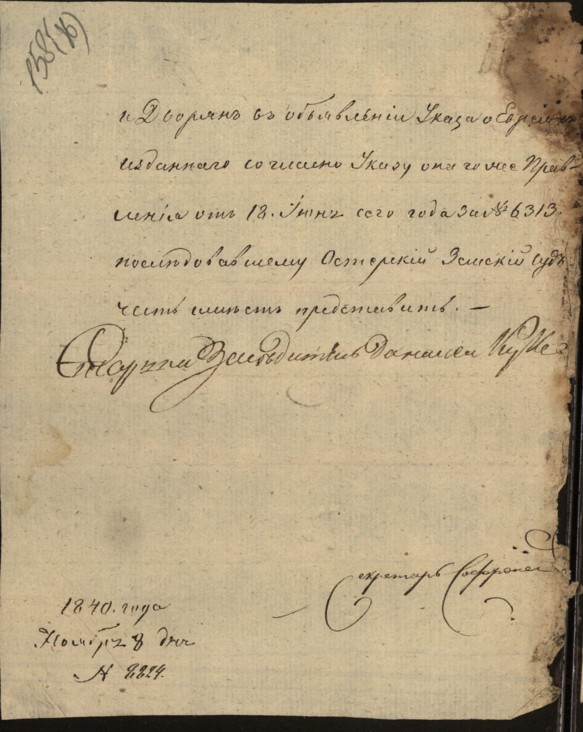 158(ж)
и Дворянъ съ объявленіи Указа о Евреяхъ
изданнаго согласно Указу онагоже Прав-
ленія отъ 18. Іюня сего года за № 6313.
последовавшему Остерскій Земскій Судъ
честь имѣетъ представить. —
Старшій Заседатель
Секретарь
1840. года
Ноябр 8 дня
№ 8224.